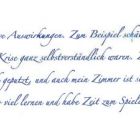 re Auswirkungen. Zum Beispiel schä
Krise ganz selbstverständlich waren. 
geputzt, und auch mein Zimmer ist s
viel lernen und habe Zeit zum Spiele